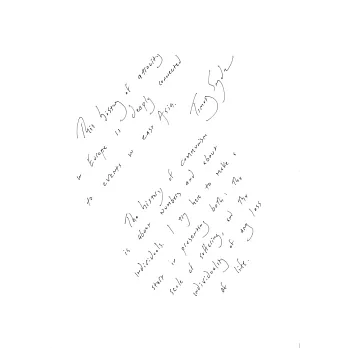 This history of atrocity
in Europe is deeply connected
to events in east Asia.
Timothy Snyder
The history of communism
is about numbers and about
individuals. I try here to make a
start in presenting both: the
scale of suffering, and the
individuality of any loss
of life.